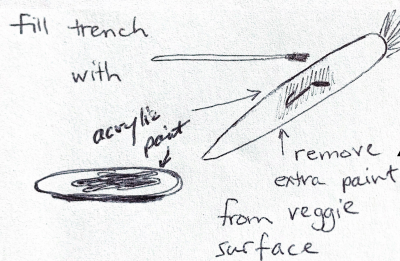 fill trench
with
acrylic
paint
remove
extra paint
from veggie
surface